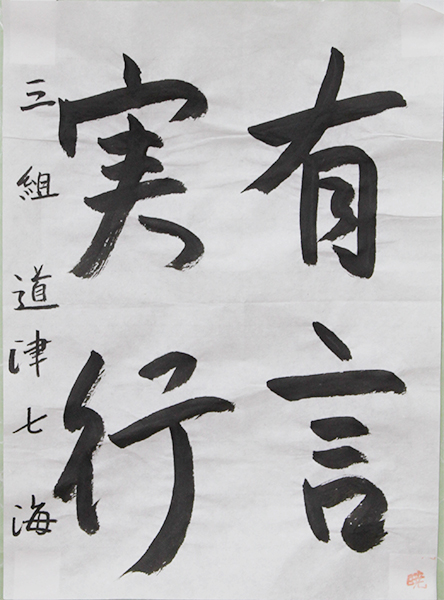 有言
実行
三組 道津七海
暁